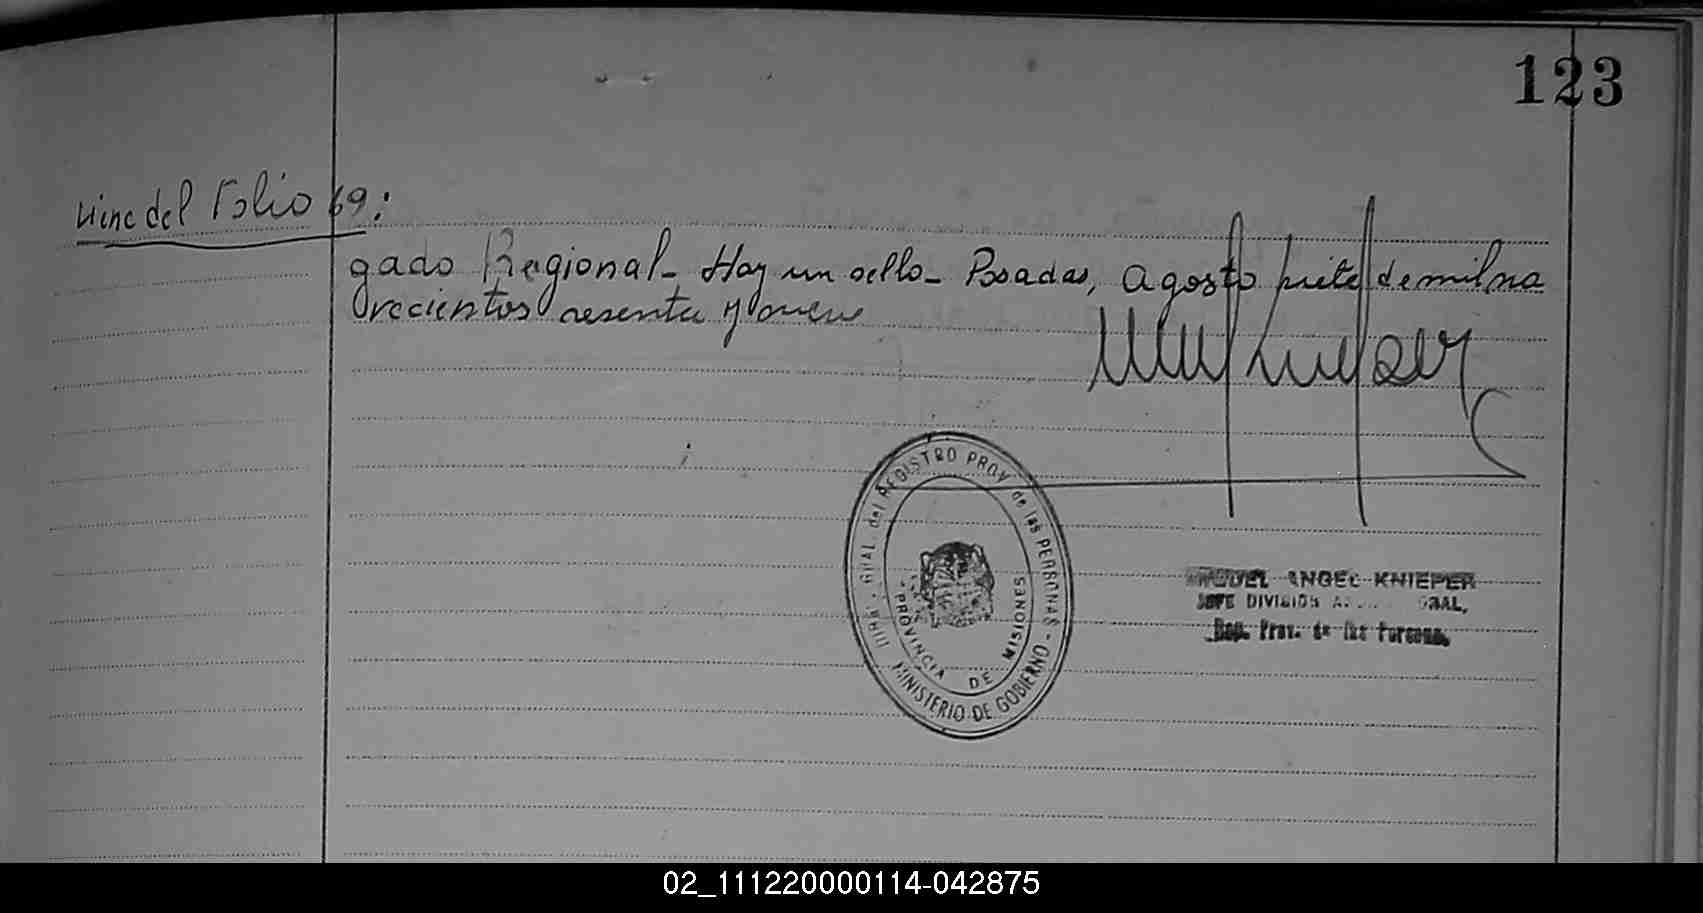 123
viene del Folio 69:
gado Regional_ Hay un sello_ Posadas, Agosto siete de mil no
vecientos sesenta y nueve
GRAL. del REGISTRO PROV. de las PERSONAS -
MINISTERIO DE GOBIERNO
PROVINCIA DE MISIONES
ANGEL KNIEPER
JEFE DIVISION
Rep. Prov. de las Personas
02_111220000114-042875